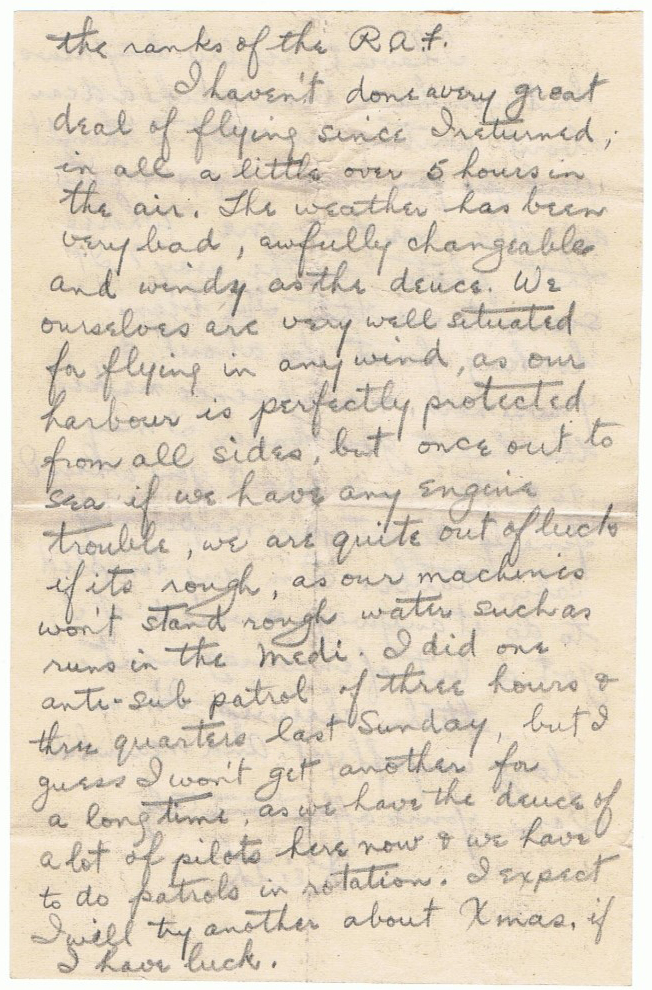 the ranks of the R.A.F.
I haven't done a very great
deal of flying since I returned;
in all a little over 5 hours in
the air. The weather has been
very bad, awfully changeable
and windy as the deuce. We
ourselves are very well situated
for flying in any wind, as our
harbour is perfectly protected
from all sides, but once out to
sea if we have any engine
trouble, we are quite out of luck
if its rough, as our machines
won't stand rough water such as
runs in the Medi. I did one
anti-sub patrol of three hours &
three quarters last Sunday, but I
guess I won't get another for
a long time, as we have the deuce of
a lot of pilots here now & we have
to do patrols in rotation. I expect
I will try another about Xmas, if
I have luck.